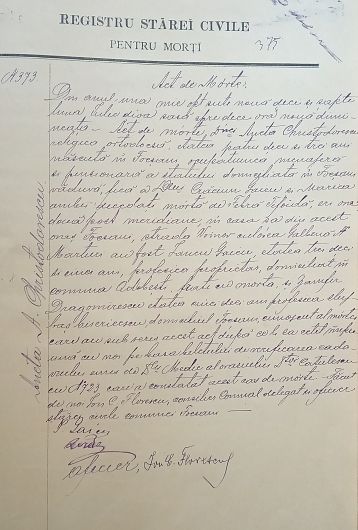 REGISTRU STĂREĬ CIVILE
PENTRU MORȚĬ
375
N 373
Act de Morte.
Din anul una mie opt sute nouă deci și șapte
luna Iulie diua șasă spre dece ora nouă dimi-
neața. Act de morte, Dnei Aneta Christodorescu
religiea ortodocsă, etatea patru deci și trei ani
născută în Focșani, ocupațiunea menajeră
și pensionară a statului domiciliată în Focșani
văduvă, fiică a D-lui Crăciun și Maria
ambii decedați mortă de febră tifoidă, eri ora
două post meridiane, în casa sa din acest
oraș Focșani, strada culorea Galbenă N
Martori au fost Iancu etatea trei deci
și cinci ani, profesiea proprietar, domiciliat în
comuna Odobesci, cu morta, și Zamfir
Dragomirescu etatea cinci deci ani profesiea
bisericescu domiciliat Focșani, cunoscut al mortei
care au sub scris acest act după ce li s'a cetit împre
ună cu noi pe baza biletului de verificarea cada
vrului emis de D-lu Medic al orașului
cu N 723 care a constatat acest cas de morte. Făcut
de noi Ion C. Florescu, consilier Comunal delegat și oficer
stărei civile comunei Focșani
Ion C. Florescu
Aneta A. Christodorescu